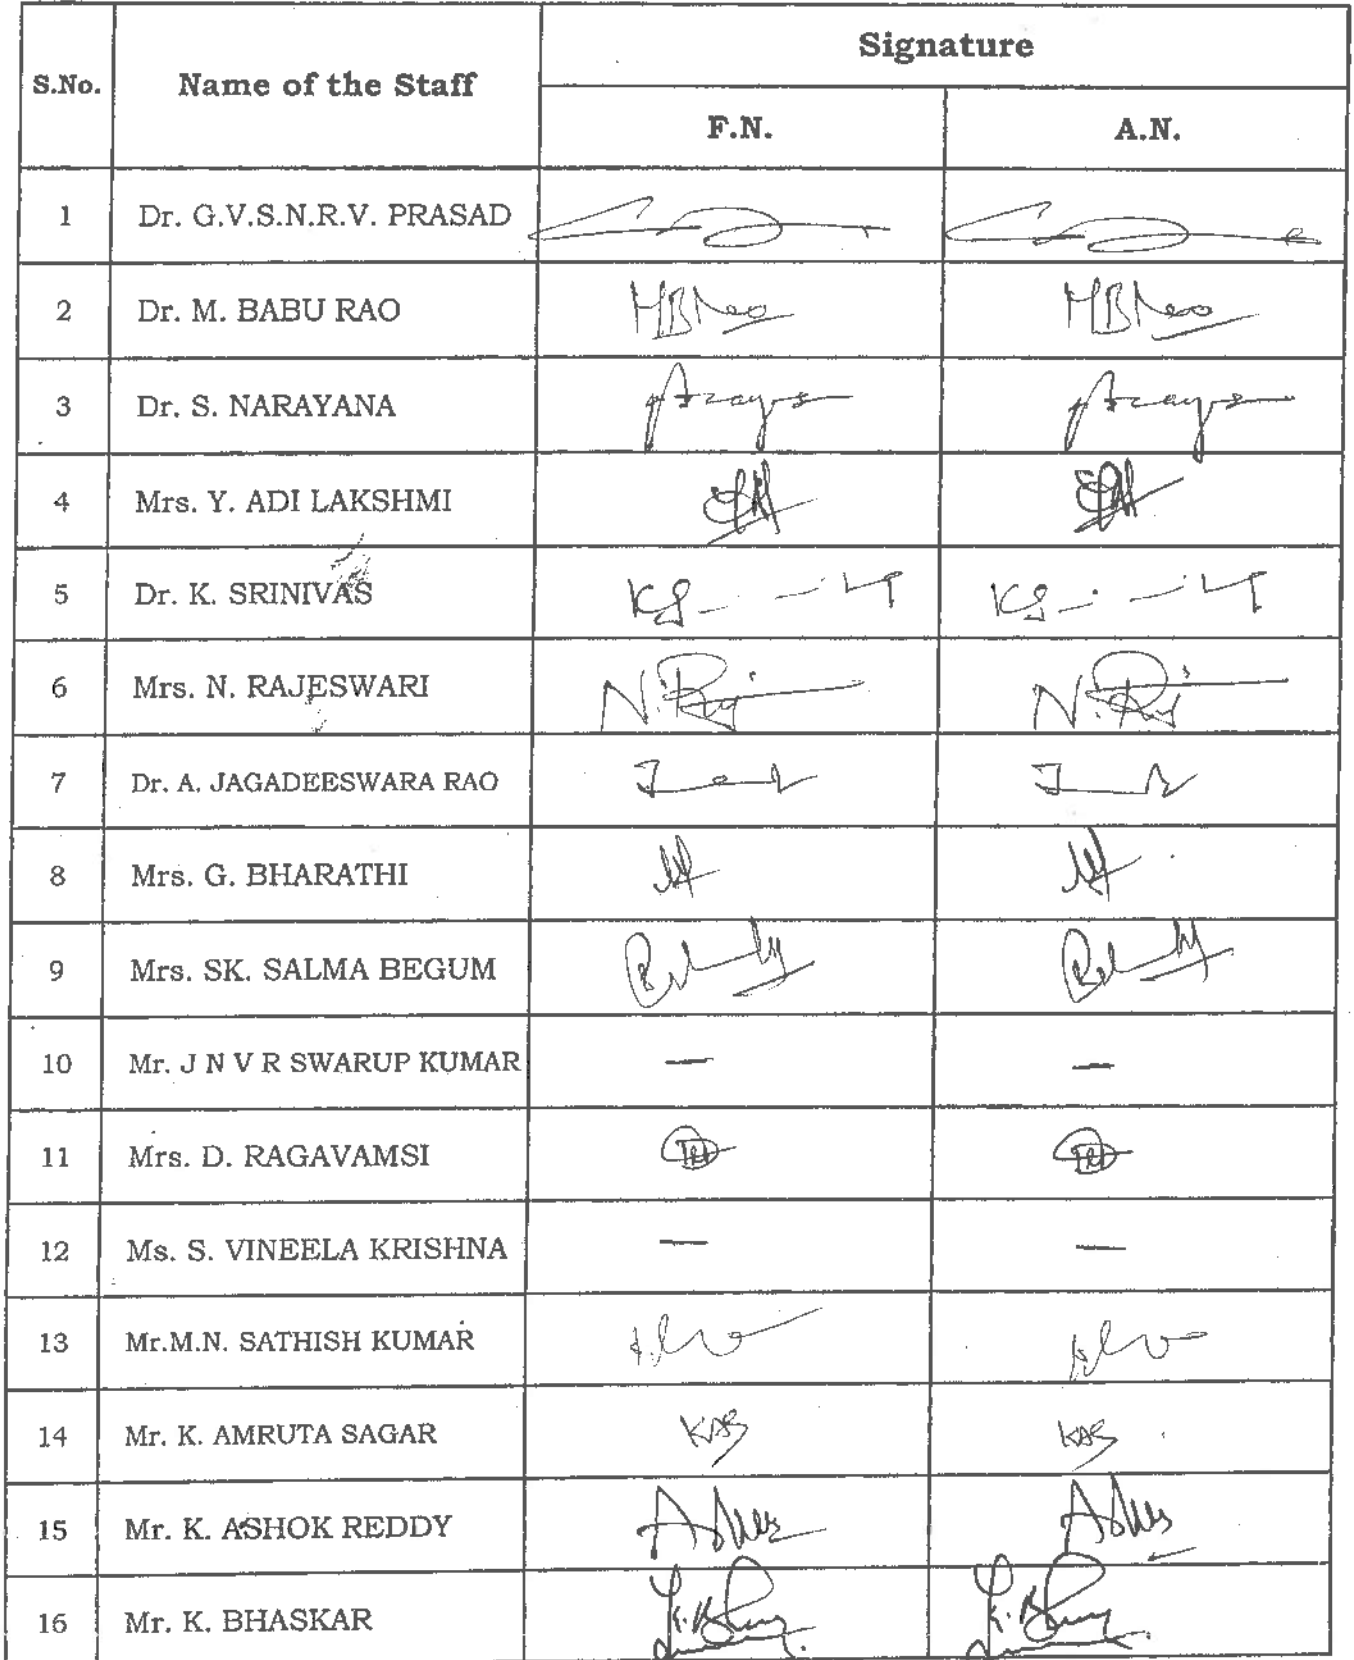 S.No. Name of the Staff Signature
F.N. A.N.
1 Dr. G.V.S.N.R.V. PRASAD
2 Dr. M. BABU RAO MBRao MBRao
3 Dr. S. NARAYANA
4 Mrs. Y. ADI LAKSHMI
5 Dr. K. SRINIVAS
6 Mrs. N. RAJESWARI N. Raj N. Raj
7 Dr. A. JAGADEESWARA RAO
8 Mrs. G. BHARATHI
9 Mrs. SK. SALMA BEGUM
10 Mr. J N V R SWARUP KUMAR — —
11 Mrs. D. RAGAVAMSI
12 Ms. S. VINEELA KRISHNA — —
13 Mr.M.N. SATHISH KUMAR
14 Mr. K. AMRUTA SAGAR KAS KAS
15 Mr. K. ASHOK REDDY
16 Mr. K. BHASKAR